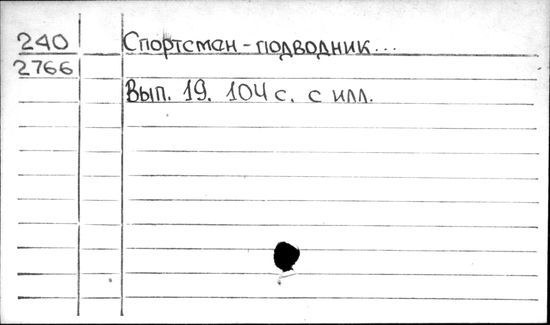 240 Спортсмен-подводник...
2766
Вып. 19. 104 с. с илл.